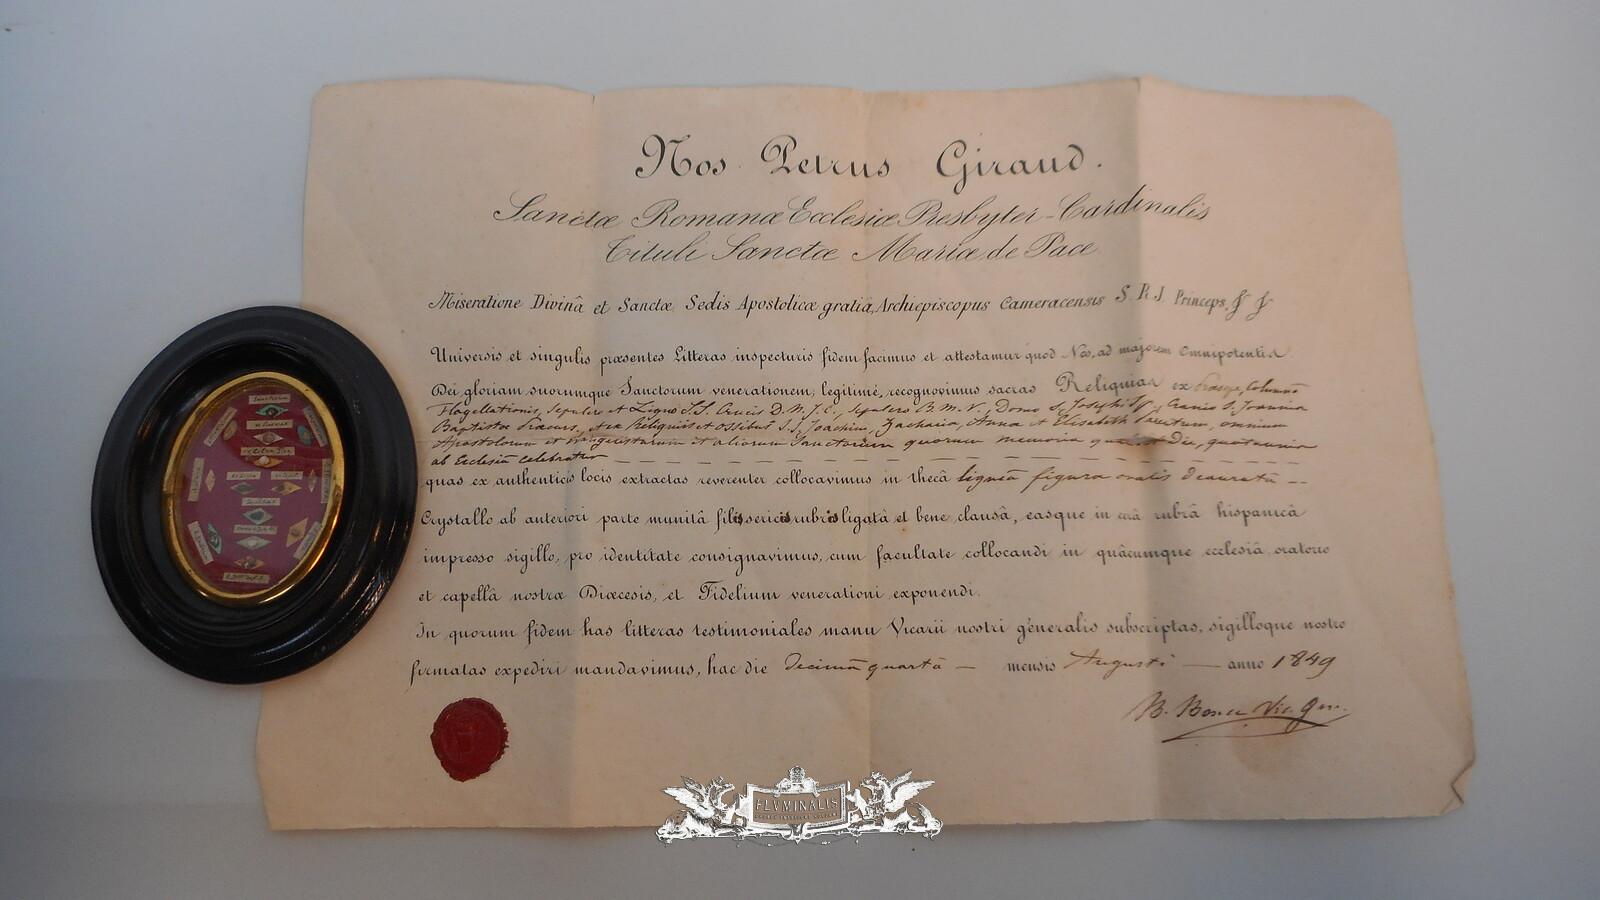 Nos Petrus Giraud.
Sanctæ Romanæ Ecclesiæ Presbyter-Cardinalis
Tituli Sanctæ Mariæ de Pace
Miseratione Divinâ et Sanctæ Sedis Apostolicæ gratiâ, Archiepiscopus Cameracensis S. R. J. Princeps,
Universis et singulis præsentes Litteras inspecturis fidem facimus et attestamur quod Nos, ad majorem Omnipotentis
Dei gloriam suorumque Sanctorum venerationem, legitimè, recognovimus sacras Reliquias ex Præsepe, Columnâ
Flagellationis, sepulcro et Ligno S.S. Crucis D. N. J. C., sepulcro B. M. V., Domo S. Josephi Sp., Cranio S. Joannis
Baptistæ Præcurs, Reliquiis et ossibus S.S. Joachim, Zacharia, Anna et Elisabeth Parentum, omnium
Apostolorum et Evangelistarum et aliorum Sanctorum quorum memoria die, quotannis
ab Ecclesiâ celebratur
quas ex authenticis locis extractas reverenter collocavimus in thecâ ligneâ figura ovalis deauratâ --
Crystallo ab anteriori parte munitâ filis sericis rubris ligatâ et bene clausâ, easque in cerâ rubrâ hispanicâ
impresso sigillo, pro identitate consignavimus, cum facultate collocandi in quâcumque ecclesiâ oratorio
et capellâ nostræ Diœcesis, et Fidelium venerationi exponendi.
In quorum fidem has litteras testimoniales manu Vicarii nostri generalis subscriptas, sigilloque nostro
firmatas expediri mandavimus, hac die decimâ quartâ — mensis Augusti — anno 1849
Vic. Gen.
FLVMINALIS